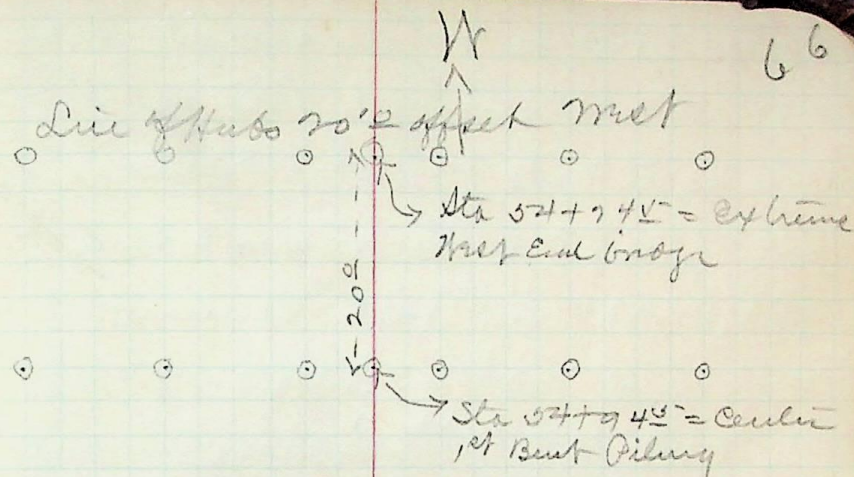 W
66
Line of Hubs 20'0 offset West
Sta 54+74⁵ = extreme
West End bridge
20⁰
Sta 54+94⁵ = Center
1st Bent Piling